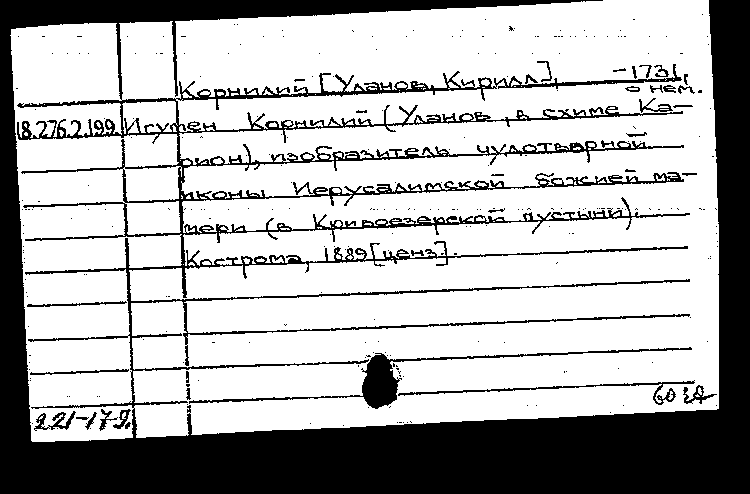 Корнилий [Уланов, Кирилл], -1731,
о нем.
18.276.2.199 Игумен Корнилий (Уланов, в схиме Ка-
рион), изобразитель чудотворной
иконы Иерусалимской божией ма-
тери (в Кривоезерской пустыни).
Кострома, 1889 [ценз].
221-179.
60